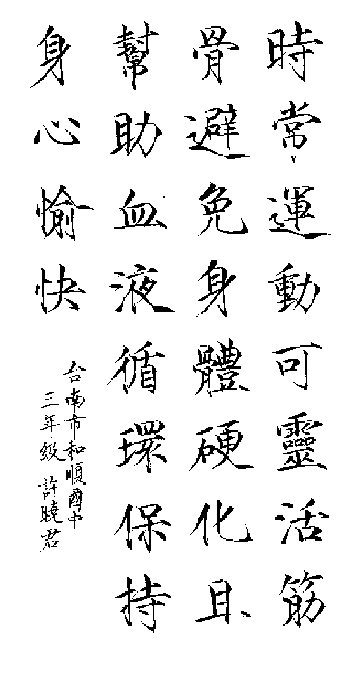 時常運動可靈活筋
骨避免身體硬化且
幫助血液循環保持
身心愉快
台南市和順國中
三年級許曉君